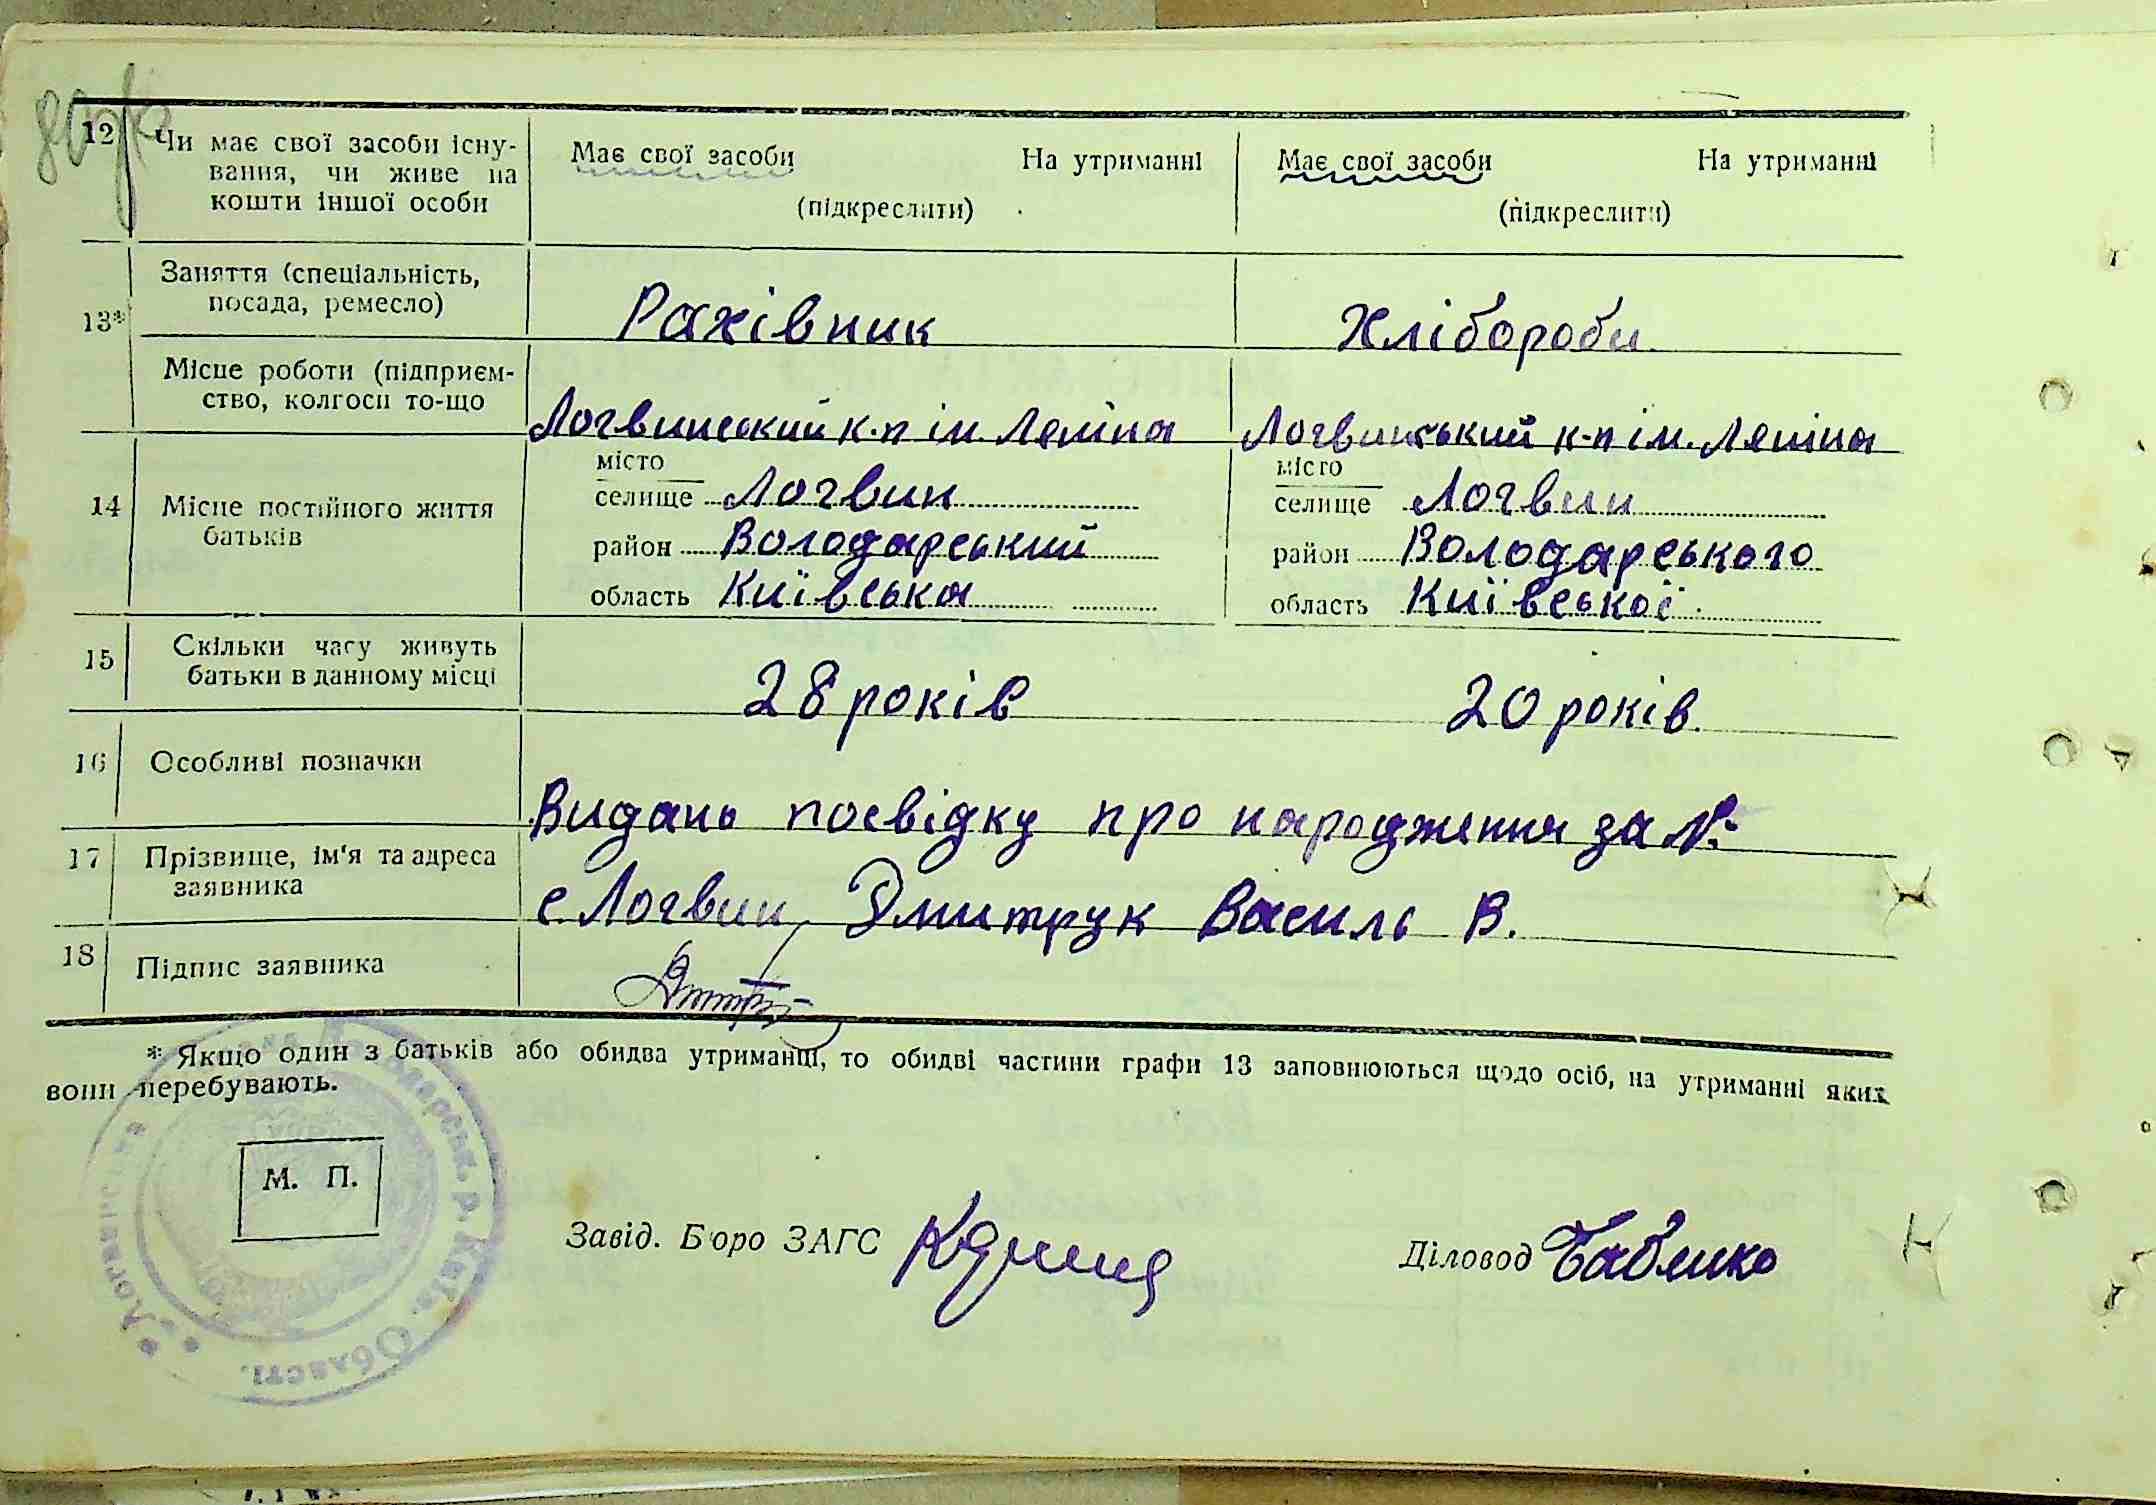 12 Чи має свої засоби існу- Має свої засоби На утриманні Має свої засоби На утриманні
вания, чи живе на
кошти іншої особи (підкреслити) (підкреслити)
13* Заняття (спеціальність,
посада, ремесло) Рахівник Хлібороби
Місце роботи (підприєм-
ство, колгосп то-що Логвинський к-п ім. Леніна Логвинський к-п ім. Леніна
14 Місце постійного життя
батьків
місто місто
селище Логвин селище Логвин
район Володарський район Володарського
область Київська область Київської
15 Скільки часу живуть
батьки в данному місці 28 років 20 років.
16 Особливі позначки
Видань посвідку про народження за №
17 Прізвище, ім'я та адреса
заявника с. Логвин, Дмитрук Василь В.
18 Підпис заявника
* Якщо один з батьків або обидва утриманці, то обидві частини графи 13 заповнюються щодо осіб, на утриманні яких
вони перебувають.
М. П.
Завід. Бюро ЗАГС Діловод Бабенко
Володарськ. р. Київ. Області.